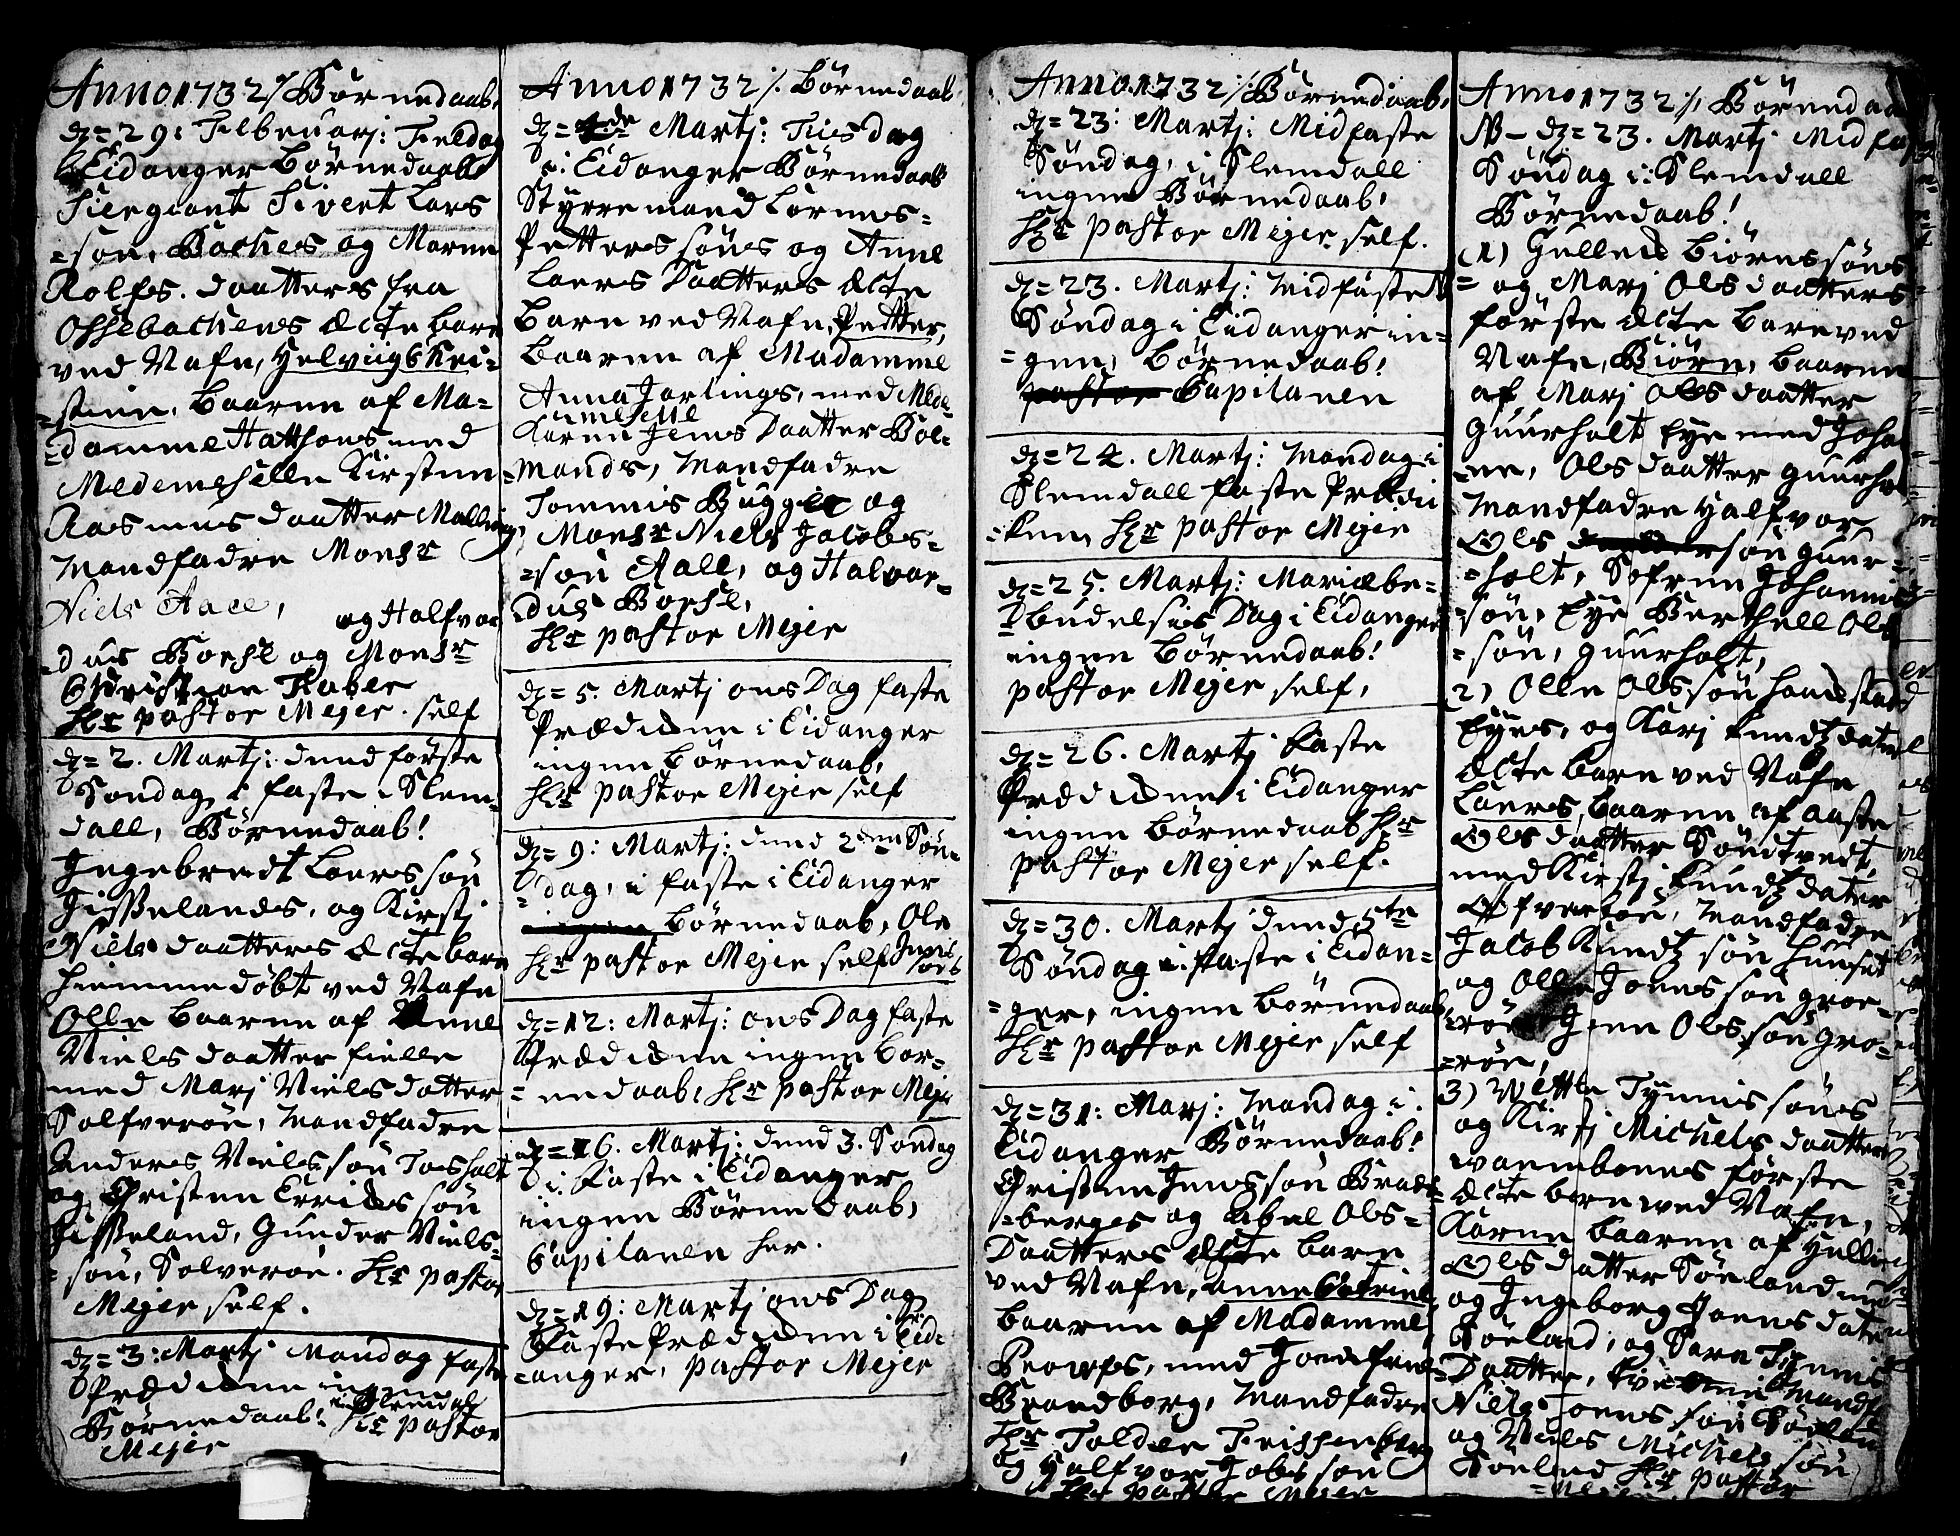 Anno 1732 ⁒ Börnedaab,
dz = 29: Febeuarj: Feldag
Eidanger Börnedaab
Siergiant Sivert Lars
=søn, Baches og Maren
Rolfs. daatters fra
Ossebachens Ecte barn
ved Nafn, Helviig Kri=
=stine, baaren af Ma=
=damme Hatthons med
Medemeselle Kirsten
Rasmus daatter Malling
Mandfadre Monsr
Niels Aace, og Halfvor
=dus Borse og Monsr
Christian Faber
Hr pastor Mejer. self
dz = 2. Martj: dend förste
Søndag i faste i Slem=
dall, Börnedaab!
Ingebredt Laers søn
Gisselands, og Kirstj
Niels daatters Ecte barn
hiemmedöbt ved Nafn
Olle baaren af Anne
Niels daatter fielle
med Marj Niels datter
Solfveröe, Mandfadre
Anders Niels søn Tosholt
og Christen Errichs søn
Gisseland, Gunder Niels=
=søn, Solveröe. Hr pastor
Mejer self.
dz = 3: Martj Mandag faste
Prædichen ingen
Börnedaab! i Slemdal
Hr pastor
Mejer
Anno 1732 ⁒ Börnedaab
dz = 4de Martj: Tiisdag
i Eidanger Börnedaab
Styrremand Lorens=
Petters søns og Anne
Laers Daatters Ecte
Barn ved Nafn, Petter,
baaren af Madamme
Anna Jorlings, med Mede=
meselle
Karen Jens Daatter Bol=
=mands, Mandfadre
Tommis Bugge og
Monsr Niels Jacobs=
=søn Aall, og Halvor=
dus Borse,
Hr pastor Mejer
dz = 5. Martj ons Dag faste
Prædichen i Eidanger
ingen Börnedaab,
Hr pastor Mejer self
dz = 9: Martj: dend 2den Søn=
=dag, i faste i Eidanger
Börnedaab, Ole
Jens
Hr pastor Mejer self søns
dz = 12: Martj: ons Dag faste
Prædichen ingen bör=
=nedaab, Hr pastor Mejer
dz = 16. Martj: dend 3. Søndag
i Faste i Eidanger
ingen Börnedaab,
Capilanen her.
dz = 19: Martj ons Dag
Faste Prædichen i Eid=
=anger, pastor Mejer
Anno 1732 ⁒ Börnedaab,
dz = 23: Martj: Midfaste
Søndag, i Slemdall
ingen Börnedaab,
Hr pastor Mejer self.
dz = 23. Martj: Midfaste
Søndag i Eidanger in=
=gen, Börnedaab!
Capilanen
dz = 24. Martj: Mandag i
Slemdall faste Prædic
=ken Hr pastor Mejer
dz = 25. Martj: Mariæ be=
=budelsis Dag i Eidanger
ingen Börnedaab!
pastor Mejer self,
dz = 26. Martj faste
Prædichen i Eidanger
ingen Börnedaab Hr
pastor Mejer self.
dz = 30. Martj dend 5te
Søndag i faste i Eidan=
=ger, ingen börnedaab
Hr pastor Mejer self
dz = 31: Marj: Mandag i
Eidanger Börnedaab!
Christen Jens søn Brads=
=berges og Abel Ols=
Daatters Ecte barn
ved Nafn, Anne Catrine,
baaren af Madamme
med
Brandborg, Mandfadre
Hr Tolder Frissenberg
og Halfvor Jobs søn
Hr pastor Mejer
Anno 1732 ⁒ Börnedaab
NB – dz = 23. Martj Midfaste
Søndag i: Slemdall
Börnedaab!
(1) Gulled Biörns søns
= og Marj Ols daatters
förste Ecte barn ved
Nafn, Biörn, baaren
af Marj Ols daatter
Guurholt Eye med Joha
=ne, Ols daatter guurho
Mandfadre Halfvor
Ols søn guur=
=holt, Sofren Johannis
=søn, Eye Berthell Ols
=søn, guurholt,
2) Olle Ols søn handstad
Eyes, og Karj Knudtz dater
Ecte barn ved Nafn
Laers, baaren af Aaste
Ols daatter Söndtvedt,
med Kirstj Knudtz dater
Mandfadre
Jacob Knudtz søn
og Olle Joens søn groe=
=röe Jen Ols søn Gro=
=röe,
3) Tynnis søns
og Kirstj Michels daatter
förste
Ecte barn ved Nafn,
Karen baaren af
Ols daatter Sörland med
og Ingeborg Joens dater
og Tynnis
Daatter, Mandf
Niels Joens søn
og Niels Michels søn
Hr pastor